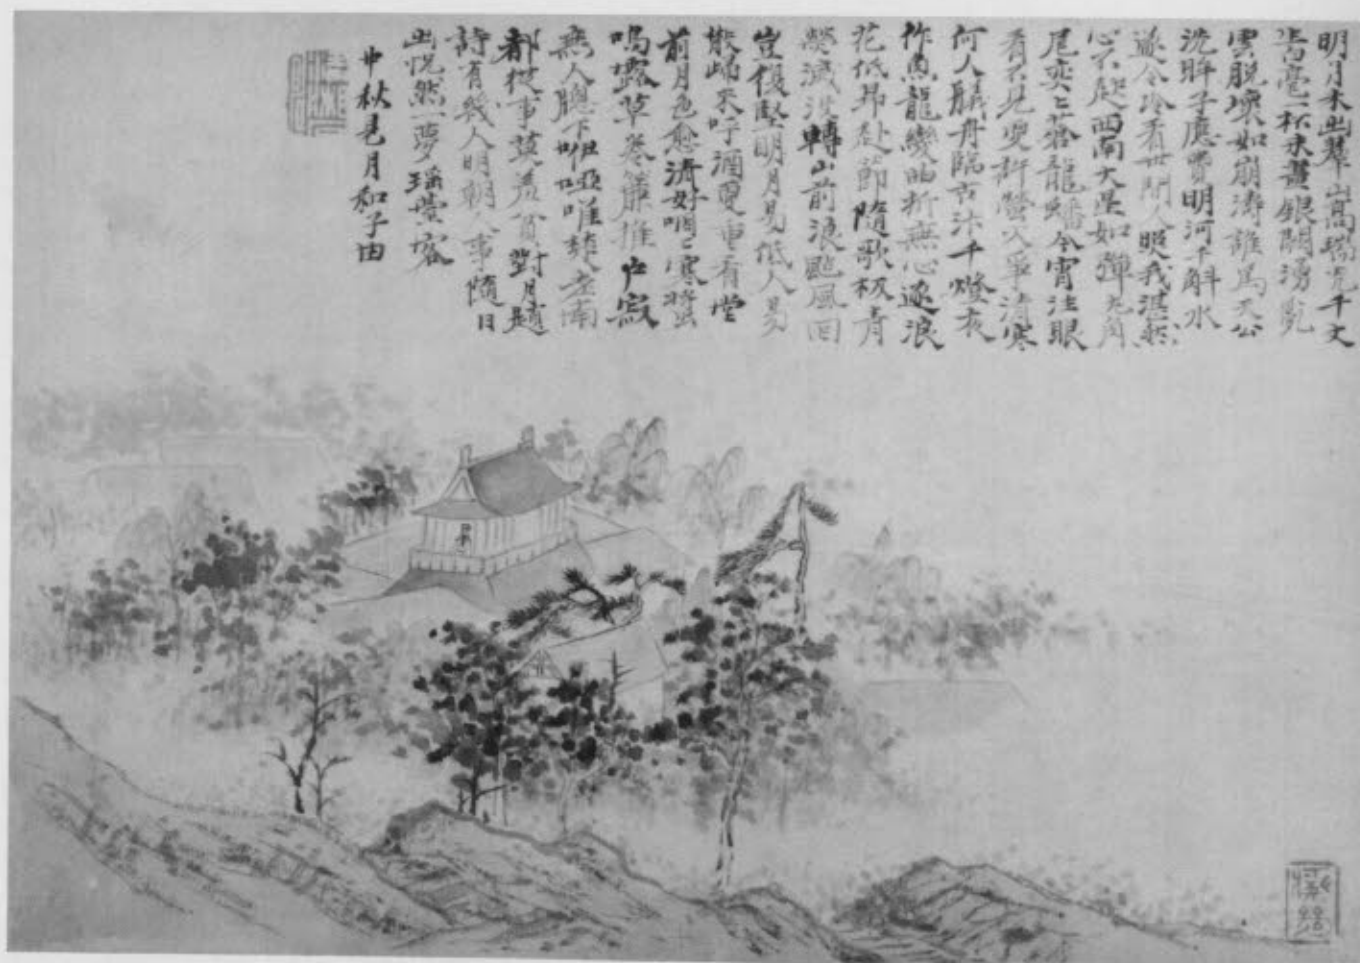 明月未出羣山高瑞光千丈
生白毫一杯未盡銀闕湧亂
雲脫壞如崩濤誰為天公
洗眸子應費明河千斛水
遂令冷看世間人照我湛然
心不起西南火星如彈丸角
尾奕々蒼龍蟠今宵注眼
看不見更許螢火爭清寒
何人艤舟臨古汴千燈夜
作魚龍變曲折無心逐浪
花低昂赴節隨歌板青
熒滅沒轉山前浪颭風回
豈復堅明月易低人易
散歸來呼酒更重看堂
前月色愈清好咽々寒螿
鳴露草卷簾推戶寂
無人窗下咿啞唯楚老南
都從事莫羞貧對月題
詩有幾人明朝人事隨日
出恍然一夢瑤臺客
中秋見月和子由